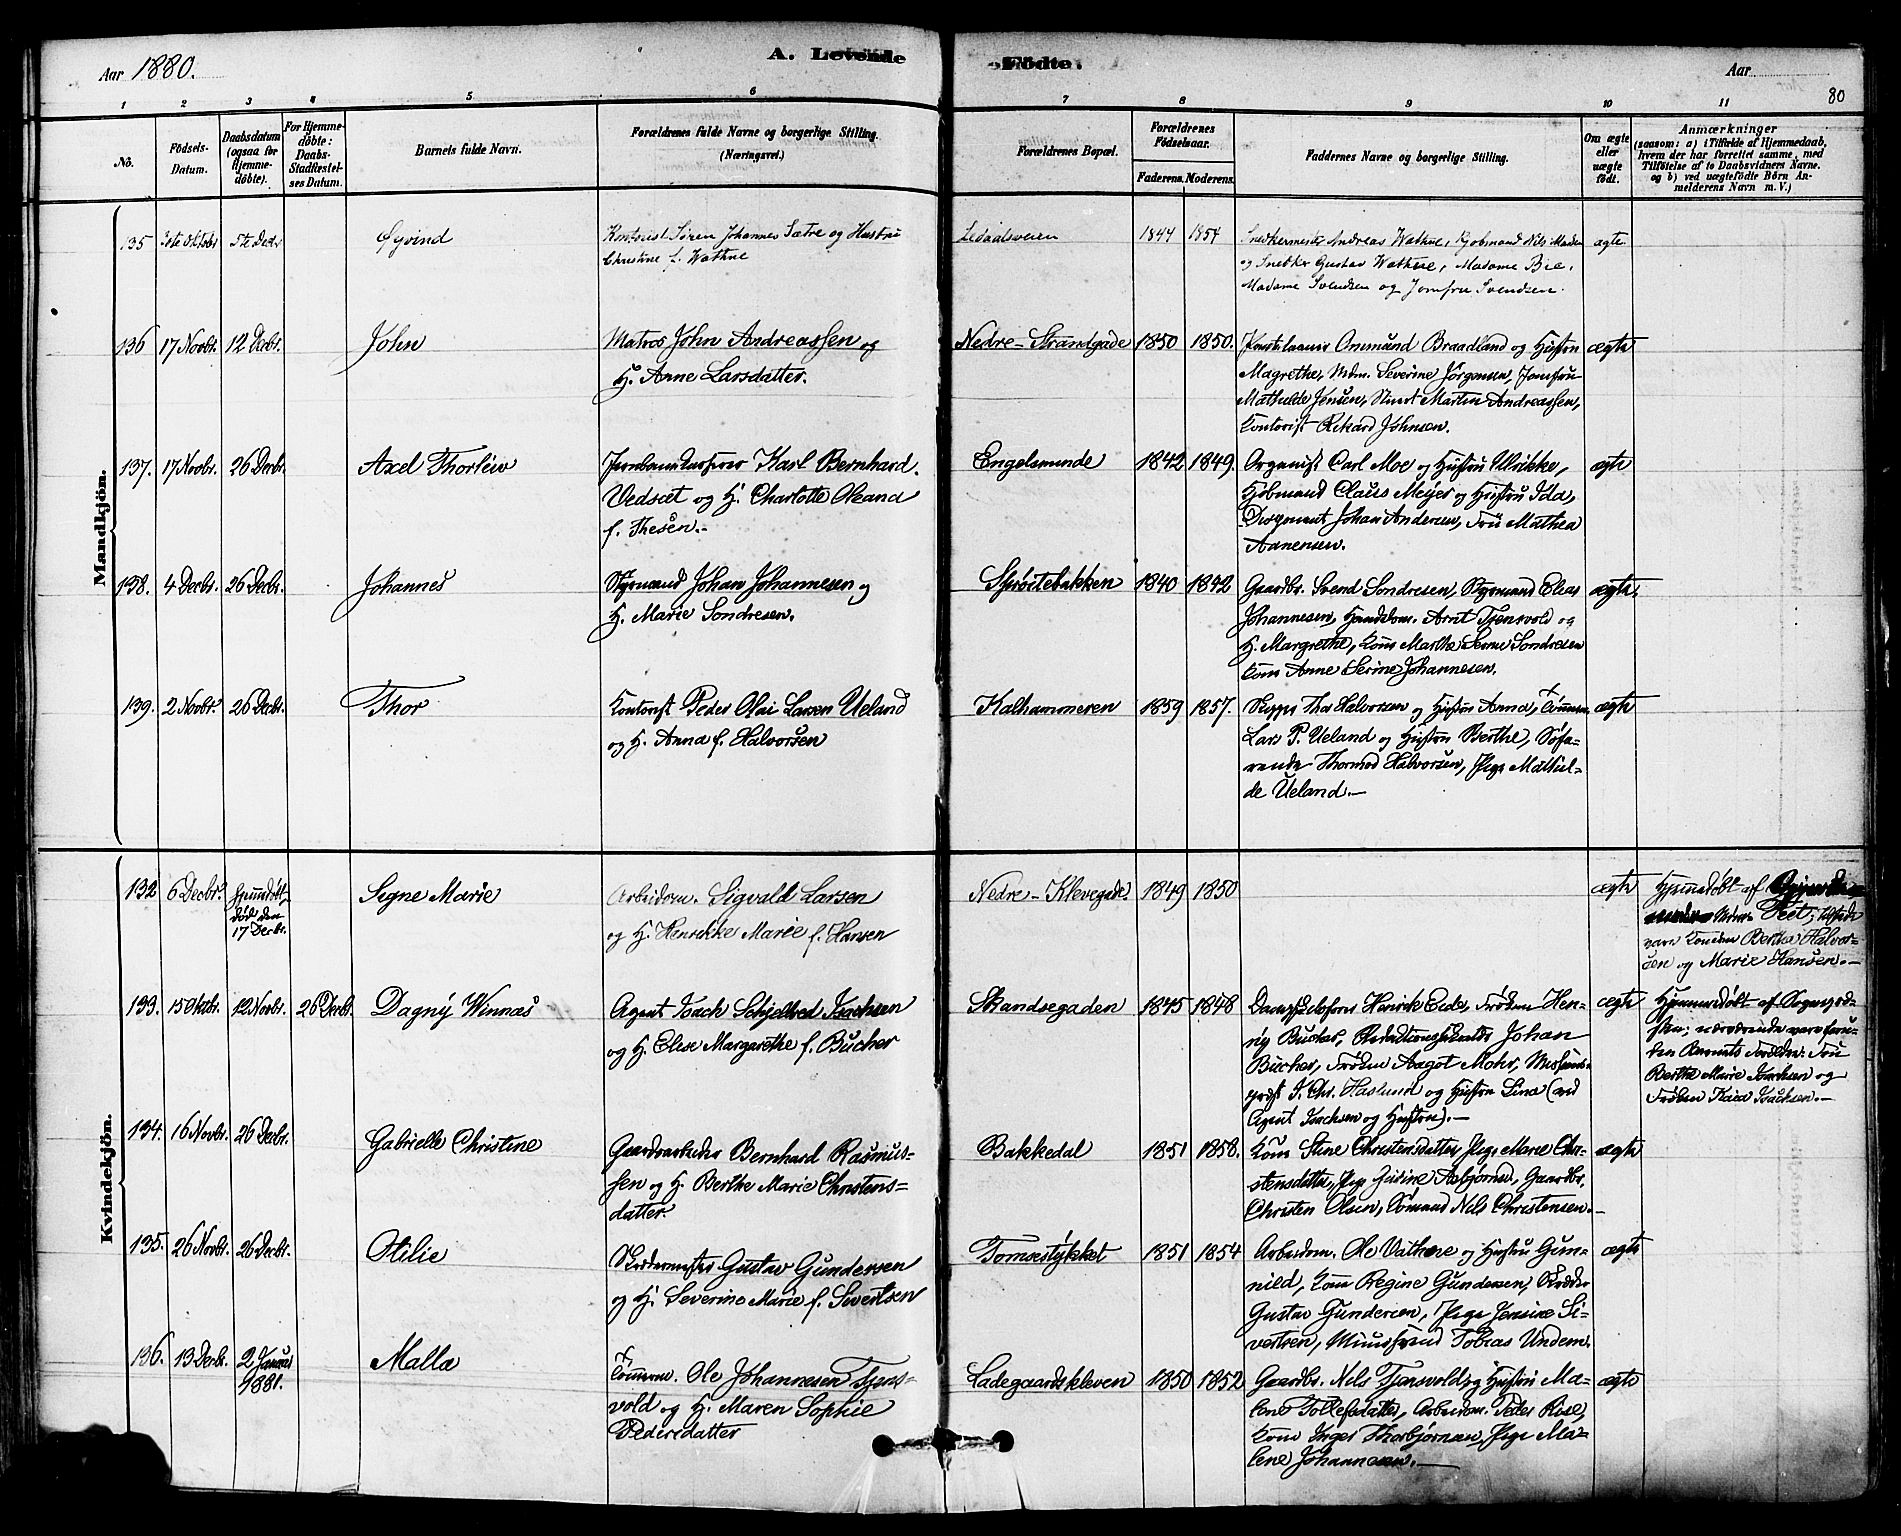 Aar 1880.
A. Levende
Födte.
Aar
80
1 2 3 4 5 6 7 8 9 10 11
No.
Födsels-Datum.
Daabsdatum (ogsaa for Hjemmedöbte).
For Hjemmedöbte: Daabs-Stadfæstelses Datum.
Barnets fulde Navn.
Forældrenes fulde Navne og borgerlige Stilling. (Næringsvei.)
Forældrenes Bopæl.
Forældrenes Födselsaar.
Faderens. Moderens.
Faddernes Navne og borgerlige Stilling.
Om ægte eller uægte födt.
Anmærkninger
(saasom: a) i Tilfælde af Hjemmedaab,
hvem der har forrettet samme, med
Tilföielse af to Daabsvidners Navne.
og b) ved uægtefödte Börn Anmelderens Navn m. V.)
Mandkjön.
135 Oktobr 5te Decbr Øyvind
Kontorist Søren Johannes Sætre og Hustru
Christine f. Wathne
Ledaalsveien 1844 1854
Snedkermester Andreas Wathne, Kjobmand Nils
og Snedker Gustav Wathne, Madame Bie,
Madame Svendsen og Jomfru Svendsen.
ægte
136 17 Novbr. 12 Decbr. John
Matros John Andreassen og
H. Anne Larsdatter.
Nedre-Strandgade 1850 1850.
Ommund Braadland og Hustru
Magrethe, Mdm. Severine Jörgensen, Jomfru
Mathilde Jensen, Martin Andreassen,
Kontorist Rikard Johnsen.
ægte
137. 17 Novbr. 26 Decbr. Axel Thorleiv
Karl Bernhard
Vedsæt og H. Charlotte Oleana
f. Thesen.
Engelsminde 1842 1849.
Organist Carl Moe og Hustru Ulrikke,
Kjöbmand Claus Meyer og Hustru Ida,
Johan Andersen, Frü Mathea
Aanensen.
ægte
138. 4 Decbr. 26 Decbr. Johannes
Styrmand Johan Johannesen og
H. Marie Sondresen.
Spröitebakken 1840 1842
Gaardbr. Svend Sondresen, Styrmand Elias
Johannesen, Arnt Tjensvold og
H. Margrethe, Kone Marthe Serine Sondresen
Kone Anne Serine Johannesen.
ægte
139. 2 Novbr. 26 Decbr. Thor
Kontorist Peder Olai Larsen Ueland
og H. Anna f. Halvorsen
Kalhammeren 1859 1857.
Skipper Thor Halvorsen og Hustru Anna, Tömmerm.
Lars P. Ueland og Hustru Berthe, Söfa-
rende Thormod Halvorsen, Pige Mathil-
de Ueland.
ægte
Kvindekjön.
132 6 Decbr. Hjemmdöbt, död den 17 Decbr. Signe Marie
Arbeidsm. Sigvald Larsen
og H. Henrikke Marie f. Hansen
Nedre-Klevegade. 1849 1850
ægte
Hjemmedöbt af
Mdm. Peet,
vare Konerne Berthe Halvor-
sen og Marie Hansen.
133. 15 Oktbr. 12 Novbr. 26 Decbr. Dagny Winnas
Agent Isack Schjelbred Isachsen
og H. Elise Margarethe f. Bucher
Skandsegaden 1845 1848
Henrik Eide, Fröken Hen-
Bucher, Johan
Bucher, Fröken Aagot Mohr,
J. Chr. Haslund og Hustru Lina (ved
Agent Isachsen og Hustru).
ægte
Hjemmedöbt af Sognepræ-
sten; nærværende vare foru-
den Barnets Forældre: Frü
Berthe Marie Isachsen og
Fröken Isachsen.
134. 16 Novbr. 26 Decbr. Gabrielle Christine
Gaardarbeider Bernhard Rasmus-
sen og H. Berthe Marie Christens-
datter.
Bakkedal 1851 1858.
Kone Stine Christensdatter, Pige Marie Chri-
stensdatter, Pige Asbjörnsd, Gaardbr.
Christen Olsen, Sömand Nils Christensen.
ægte
135. 26 Novbr. 26 Decbr. Otilie
Skrædermester Gustav Gundersen
og H. Severine Marie f. Sivertsen
Tomsestykket 1851 1854
Arbeidsm. Ole Vathne og Hustru Gun-
nild, Kone Regine Gundersen, Skrædder
Gustav Gundersen, Pige Jensine Si-
vertsen, Tobias Undem.
ægte
136. 13 Decbr. 2 Januar 1881. Malla
Tömmerm. Ole Johannesen Tjens-
vold og H. Maren Sophie
Pedersdatter
Ladegaardskleven 1850 1852
Gaardbr. Nils Tjensvold og Hustru Ma-
lene Tollefsdatter, Arbeidsm. Peder Rise,
Kone Inger Thorbjörnsen, Pige Ma-
lene Johannesen.
ægte